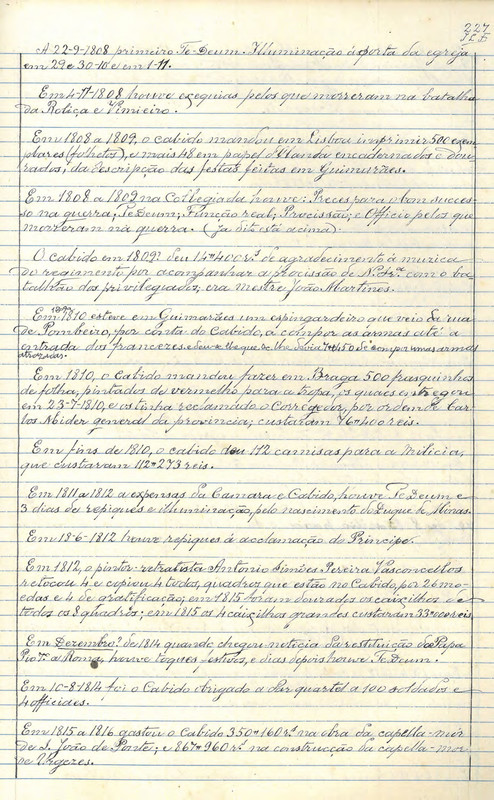 227
A 22-9-1808 primeiro Te-Deum. Illuminação á porta da egreja
em 29 e 30-10 e em 1-11.
Em 4-11-1808 houve exequias pelos que morreram na batalha
da Roliça e Vimieiro.
Em 1808 a 1809, o cabido mandou em Lisboa imprimir 500 exem
plares (folhetos), e mais 48 em papel d'Olanda encadernados e dou-
rados, da descripção das festas feitas em Guimarães.
Em 1808 a 1809 na Collegiada houve: Preces para o bom succes-
so na guerra; Te Deum; Funcção real; Procissão; e Officio pelos que
morreram na guerra. (Ja dito está acima).
O cabido em 1809? deu 14#400 rs. de agradecimento á muzica
do regimento por acompanhar a procissão de com o ba-
talhão dos privilegiados; era mestre João Martinos.
Em 1810 esteve em Guimarães um espingardeiro que veio da rua
de Pombeiro, por conta do Cabido, a compor as armas até a
entrada dos francezes. e deu-se lhe que se lhe devia 7#450 de compor umas armas
Em 1810, o Cabido mandou fazer em Braga 500 frasquinhos
de folha, pintados de vermelho para a tropa, os quaes entregou
em 23-7-1810, e os tinha reclamado o Corregedor, por ordem de Car
los Mider general da provincia; custaram 76#400 reis.
Em fins de 1810, o cabido deu 112 camisas para a Milicia,
que custaram 112#273 reis.
Em 1811 a 1812 a expensas da Camara e Cabido, houve Te Deum e
3 dias de repiques e illuminação, pelo nascimento do Duque de Minas.
Em 18-6-1812 houve repiques á acclamação do Principe.
Em 1812, o pintor-retratista Antonio Simões Pereira Vasconcellos
retocou 4 e copiou 4 todos, quadros que estão no Cabido, por 26 mo-
edas e 4 de gratificação; em 1815 foram dourados os caixilhos de
todos os 8 quadros; em 1815 os 4 caixilhos grandes custaram 33#000 reis
Em Dezembro? de 1814 quando chegou noticia da restituição do Papa
Pio 7º a Roma, houve toques festivos, e dias depois houve Te Deum.
Em 10-8-1814 foi o Cabido obrigado a dar quartel a 100 soldados e
4 officiaes.
Em 1815 a 1816 gastou o Cabido 350#160 rs. na obra da capella-mór
de S. João de Ponte; e 867#960 rs. na construcção da capella-mor
de Urgezes.